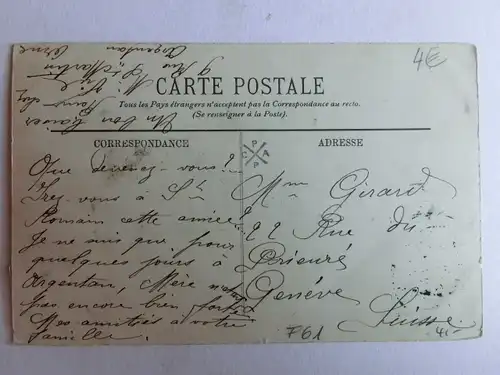 4€
CARTE POSTALE
Tous les Pays étrangers n'acceptent pas la Correspondance au recto.
(Se renseigner à la Poste).
CORRESPONDANCE
Que devenez-vous?
Irez-vous à St
Romain cette année?
Je ne suis que pour
quelques jours à
Argentan, Mère
pas encore bien forte
Mes amitiés à votre
famille.
Un bon
chez
Mr
St Martin
9 Rue
Argentan
Orne
C P P A
ADRESSE
Mme Girard
22 Rue du
Prieuré
Genève
Suisse
F61